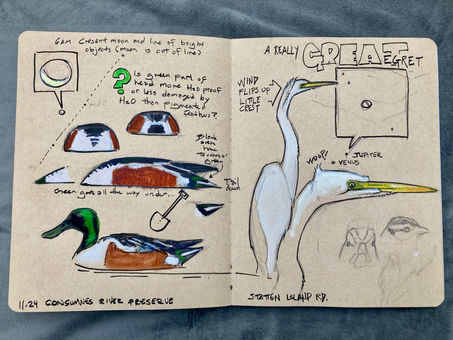 6AM Cresent moon and line of bright
objects (moon is out of line)
?
Is green part of
head more H2O proof
or less damaged by
H2O then pigmented
feathers?
Black
areas
have
touches of
green
Green goes all the way under.
Tail
down
11.24 CONSUMNES RIVER PRESERVE
A REALLY
GREAT
EGRET
WIND
FLIPS UP
LITTLE
CREST
JUPITER
VENUS
WOOP!
STATEN ISLAND RD.